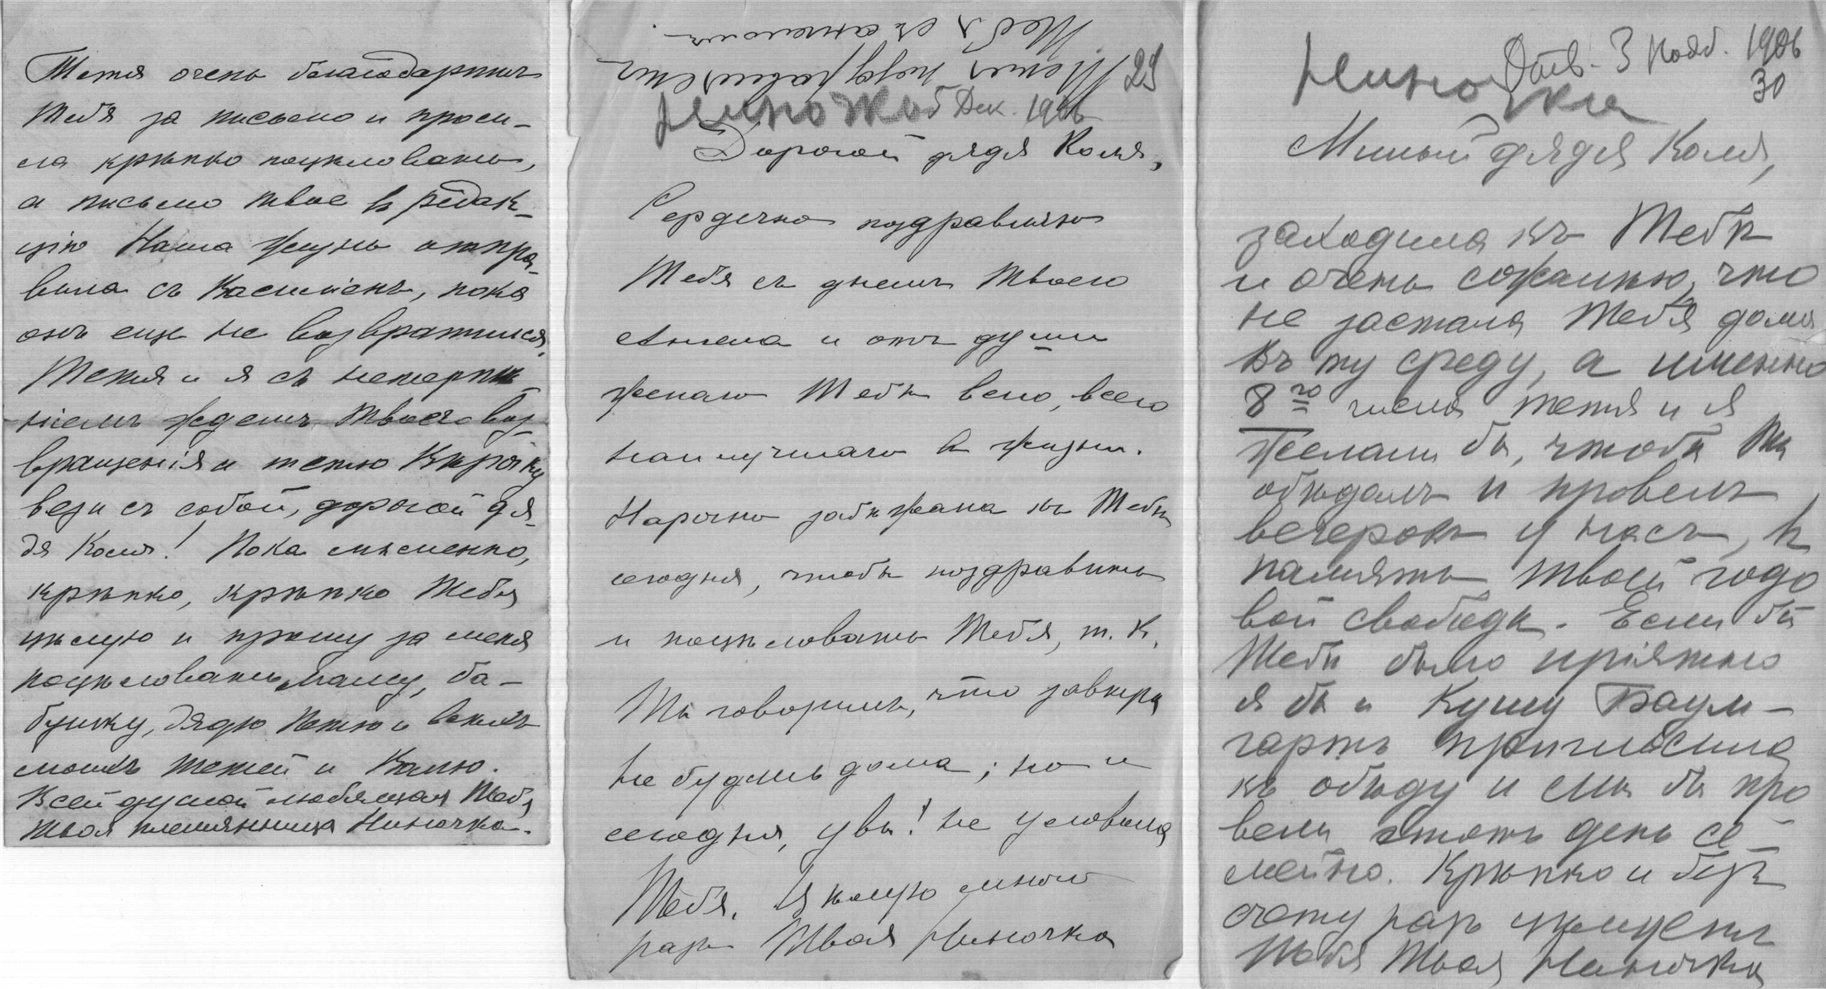 Тетя очень благодаритъ
Тебя за письмо и проси-
ла крѣпко поцѣловать,
а письмо твое въ редак-
цію Наша Жизнь отпра-
вила съ Василіемъ, пока
онъ еще не возвратился.
Тетя и я съ нетерпѣ-
ніемъ ждемъ Твоего воз-
вращенія и тетю Кирочку
вези съ собой, дорогой дя-
дя Коля! Пока мысленно,
крѣпко, крѣпко Тебя
цѣлую и прошу за меня
поцѣловать маму, ба-
бушку, дядю Петю и всѣхъ
моихъ тетей и Валю.
Всей душой любящая Тебя
твоя племянница Ниночка.
Тетя поздравляетъ
Тебя съ ангеломъ.
29
Ниночка 6 Дек. 1906
Дорогой дядя Коля,
Сердечно поздравляю
Тебя съ днемъ Твоего
Ангела и отъ души
желаю Тебѣ всего, всего
наилучшаго въ жизни.
Нарочно забѣжала къ Тебѣ
сегодня, чтобы поздравить
и поцѣловать Тебя, т. к.
Ты говорилъ, что завтра
не будешь дома; но и
сегодня, увы! не уловила
Тебя. Цѣлую много
разъ Твоя Ниночка
Ниночка Отв. 3 Нояб. 1906
30
Милый дядя Коля,
заходила къ Тебѣ
и очень сожалѣю, что
не застала Тебя дома
въ ту среду, а именно
8го числа тетя и я
желали бы, чтобы Ты
обѣдалъ и провелъ
вечеръ у насъ, въ
память твоей годо
вой свободы. Если бы
Тебѣ было пріятно
я бы и Кушу Баум-
гартъ пригласила
къ обѣду и мы бы про
вели этотъ день се-
мейно. Крѣпко и безъ
счету разъ цѣлуетъ
Тебя Твоя Ниночка